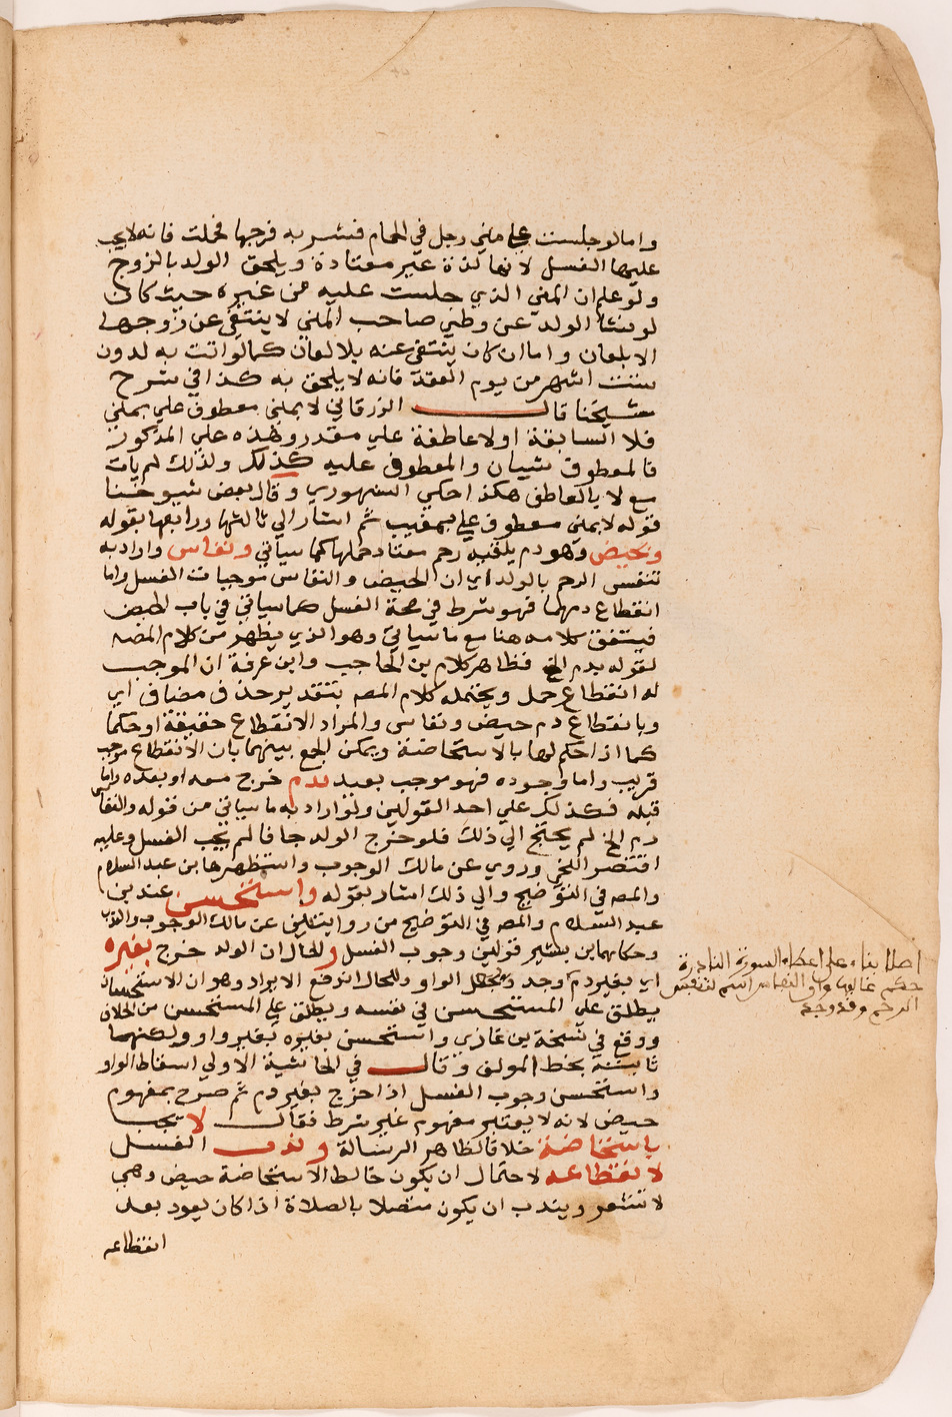 واما لو جلست علي مني رجل في الحمام فشربه فرجها فحملت فانه لا يجب
عليها الغسل لانها لذة غير معتادة ويلحق الولد بالزوج
ولو علم ان المني الذي جلست عليه من غيره حيث كان
لو نشا الولد عن وطئ صاحب المني لا ينتفي عن زوجها
الا بلعان واما ان كان ينتفي عنه بلا لعان كما لو اتت به لدون
ستت اشهر من يوم العقد فانه لا يلحق به كذا في شرح
شيخنا قال الزرقاني لا بمني معطوف علي بمني
فلا السابقة اولا عاطفة علي مقدر وهذه علي المذكور
فالمعطوف شييان والمعطوف عليه كذلك ولذلك لم يات
مع لا بالعاطف هكذا حكي السنهوري وقال بعض شيوخنا
قوله لا بمني معطوف علي بمغيب ثم اشار الي ثالثها ورابعها بقوله
وبحيض وهو دم يلقيه رحم معتاد حملها كما سياتي ونفاس واراد به
تنفس الرحم بالولد اي ان الحيض والنفاس موجبات الغسل واما
انقطاع دمهما فهو شرط في صحة الغسل كما سياتي في باب الحيض
فيتفق كلامه هنا مع ما سياتي وهو الذي يظهر من كلام المصه
لقوله بدم الخ فظاهر كلام بن الحاجب وابن عرفة ان الموجب
له انقطاع حمل ويحتمله كلام المصه بتقدير حذف مضاف اي
وبانقطاع دم حيض ونفاس والمراد الانقطاع حقيقة او حكما
كما اذا حكم لها بالاستحاضة ويمكن الجمع بينهما بان الانقطاع موجب
قريب واما وجوده فهو موجب بعيد بدم خرج معه او بعده واما
قبله فكذلك علي احد القولين ولو اراد به ما سياتي من قوله والنفاس
دم الخ لم يحتج الي ذلك فلو خرج الولد جافا لم يجب الغسل وعليه
اقتصر اللخمي وروي عن مالك الوجوب واستظهره ابن عبد السلام
والمصه في التوضيح والي ذلك اشار بقوله واستحسن عند بن
عبد السلام والمصه في التوضيح من روايتين عن مالك الوجوب والندب
وحكاهما بن بشير قولين وجوب الغسل والحال ان الولد خرج بغيره
اي بغير دم وجد وبجعل الواو للحال اندفع الايراد وهو ان الاستحسان
يطلق علي المستحسن في نفسه ويطلق علي المستحسن من الخلاف
ووقع في نسخة بن غازي واستحسن بغيره بغير واو ولكنها
ثابتة بخط المولف وقال في الحاشية الاولي اسقاط الواو
واستحسن وجوب الغسل اذا خرج بغير دم ثم صرح بمفهوم
حيض لانه لا يعتبر مفهوم غير شرط فقال لا يجب
باستحاضة خلافا لظاهر الرسالة وندب الغسل
لانقطاعه لاحتمال ان يكون خالط الاستحاضة حيض وهي
لا تشعر ويندب ان يكون متصلا بالصلاة اذا كان يعود بعد
انقطاعه
اصلا بناء علي اعطاء الصورة النادرة
حكم غالبها وان النفاس اسم لتنفس
الرحم وقد وجد